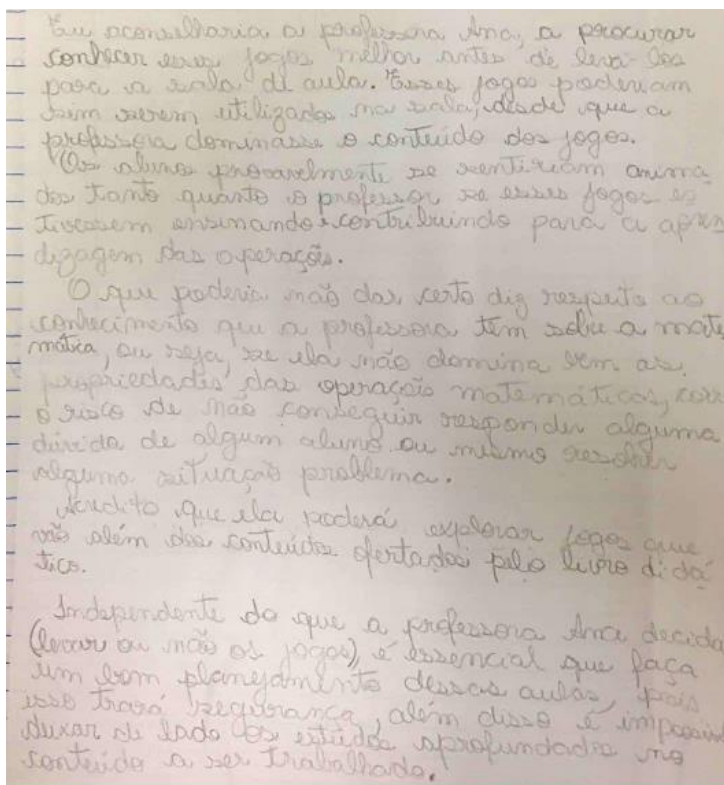 Eu aconselharia a professora Ana, a procurar
conhecer esses jogos melhor antes de levá-los
para a sala de aula. Esses jogos poderiam
sim serem utilizados na sala, desde que a
professora dominasse o conteúdo dos jogos.
Os alunos provavelmente se sentiriam anima
dos tanto quanto o professor se esses jogos es
tivessem ensinando e contribuindo para a apren
dizagem das operações.
O que poderia não dar certo diz respeito ao
conhecimento que a professora tem sobre a mate
mática, ou seja, se ela não domina bem as
propriedades das operações matemáticas, corre
o risco de não conseguir responder alguma
dúvida de algum aluno ou mesmo resolver
alguma situação problema.
Acredito que ela poderá explorar jogos que
vão além dos conteúdos ofertados pelo livro didá
tico.
Independente do que a professora Ana decida
(levar ou não os jogos), é essencial que faça
um bom planejamento dessas aulas, pois
isso trará segurança, além disso é
deixar de lado os estudos aprofundados no
conteúdo a ser trabalhado.